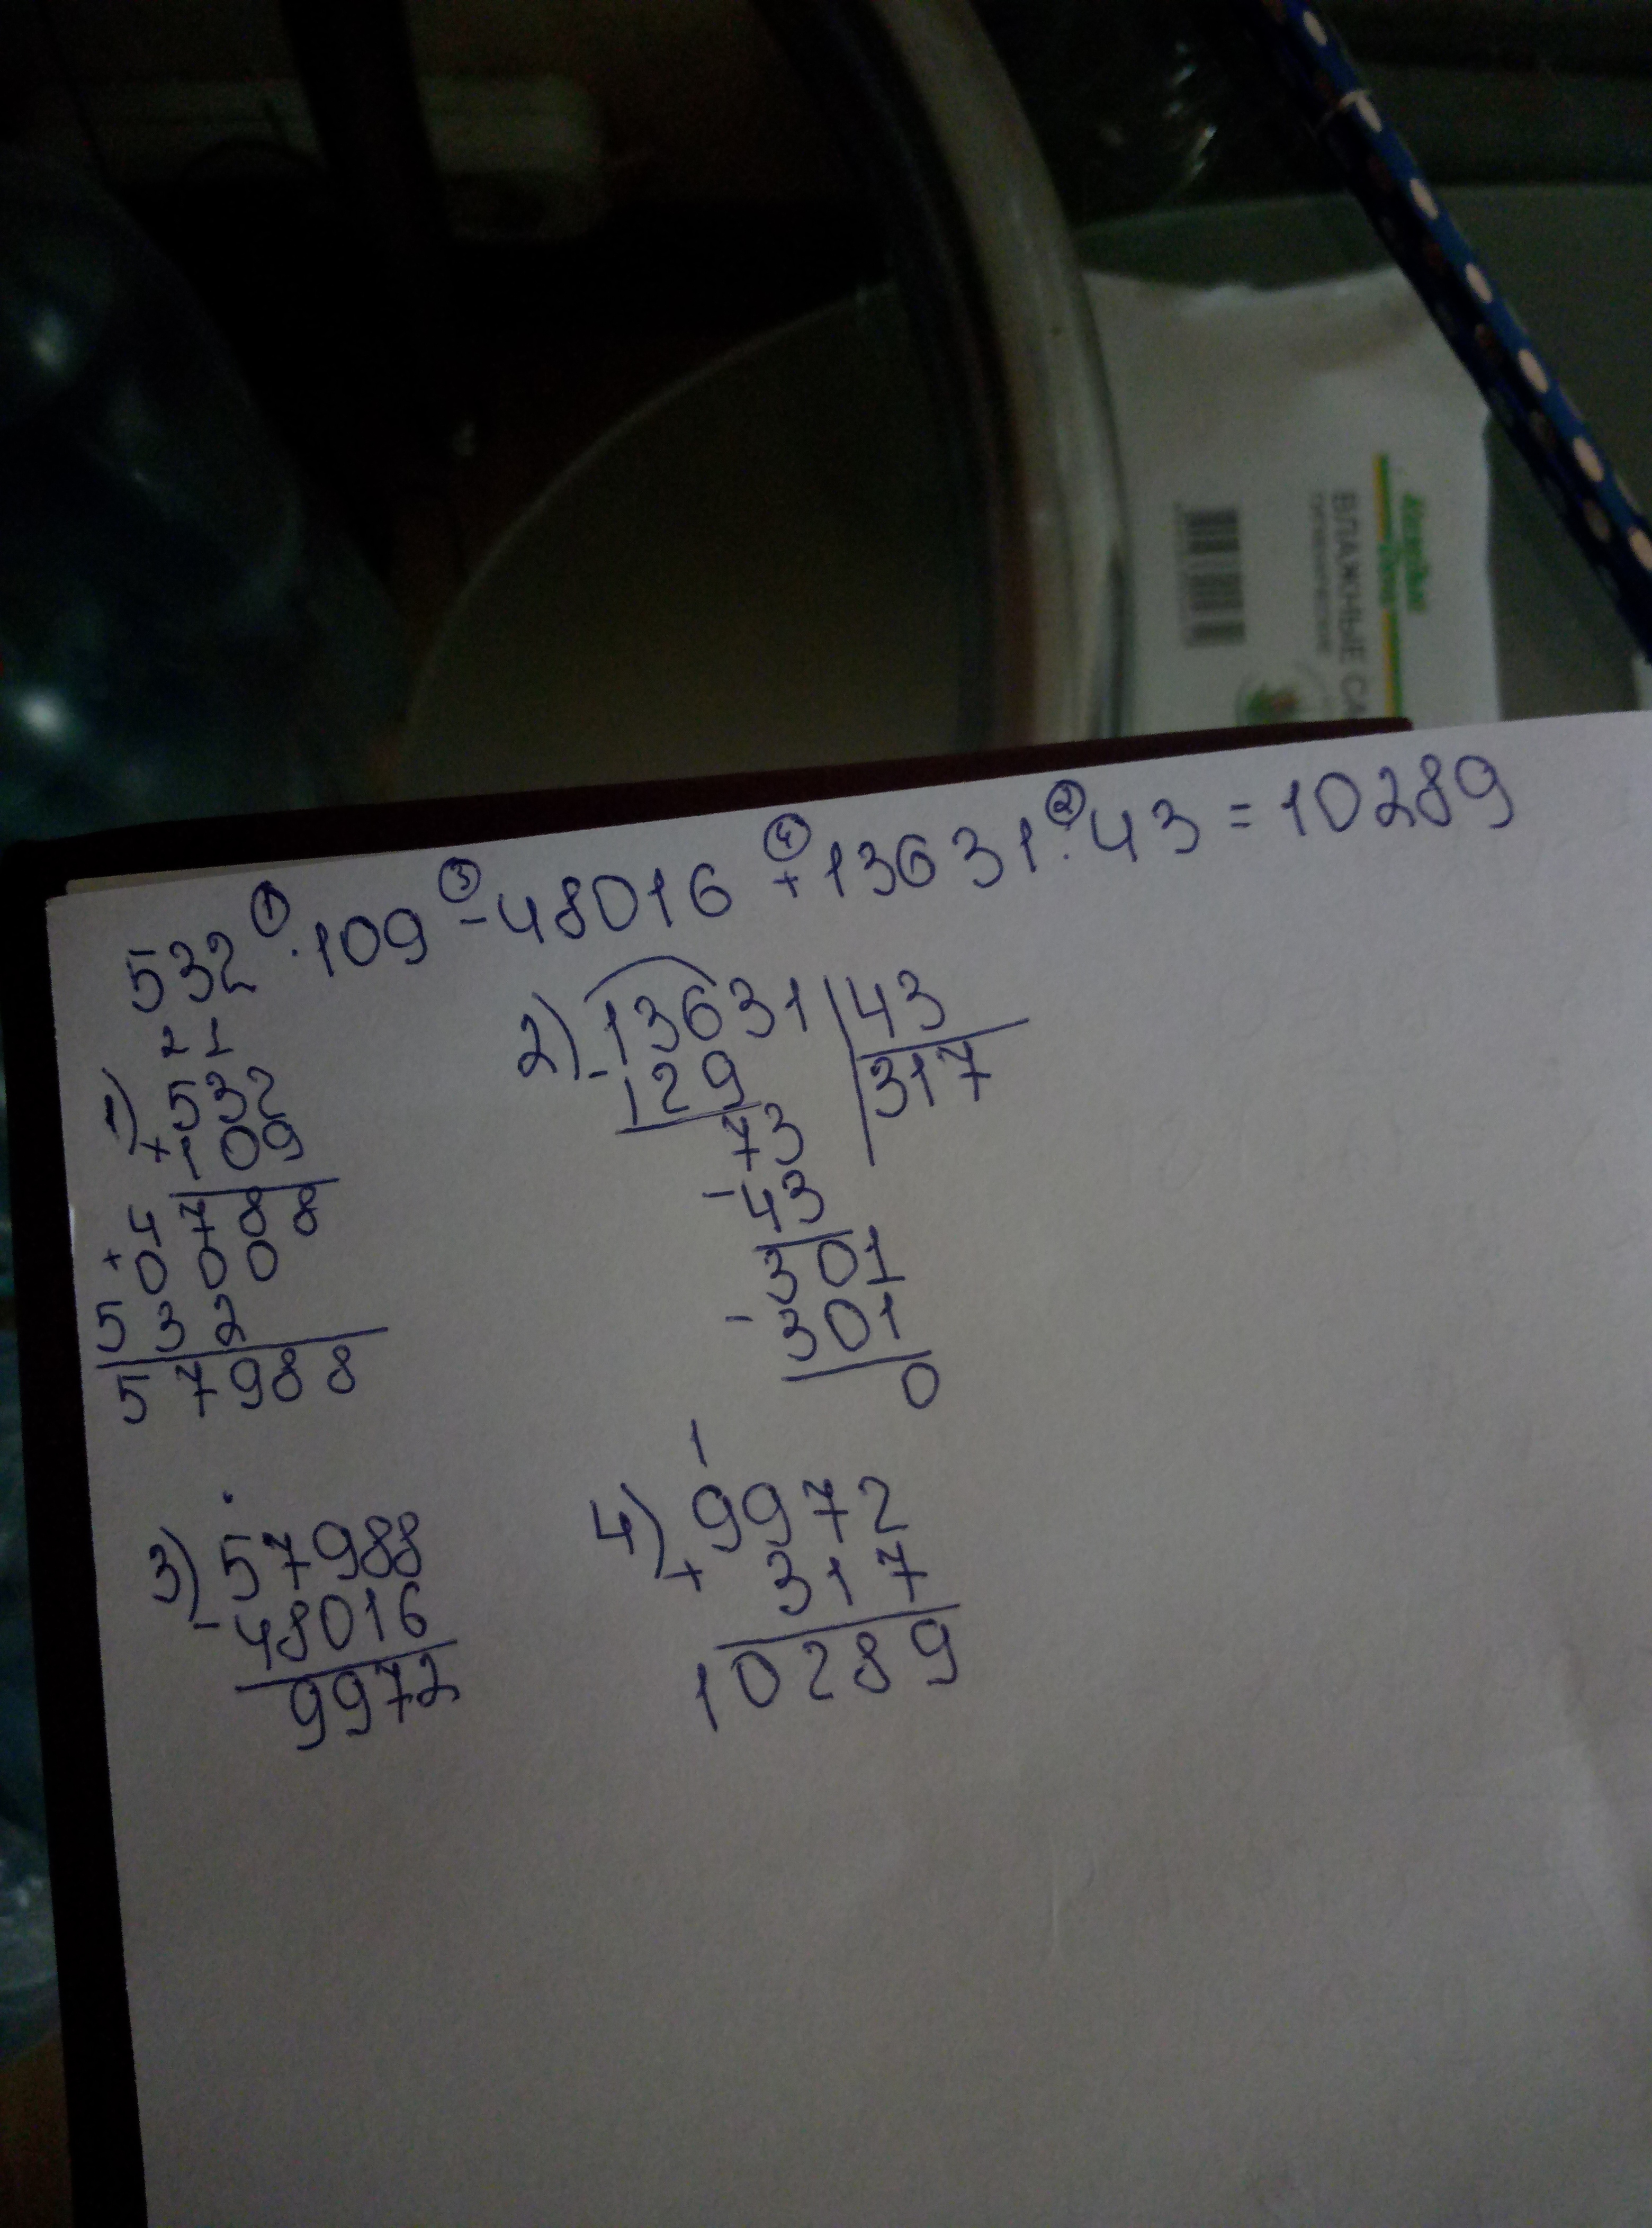 ВЛАЖНЫЕ СА
532 · 109 - 48016 + 13631 : 43 = 10289
① ③ ④ ②
1)
2 1
532
× 109
4788
+ 000
532
57988
2)
- 13631 | 43
129 | 317
73
- 43
301
- 301
0
3)
- 57988
48016
9972
4)
1
9972
+ 317
10289